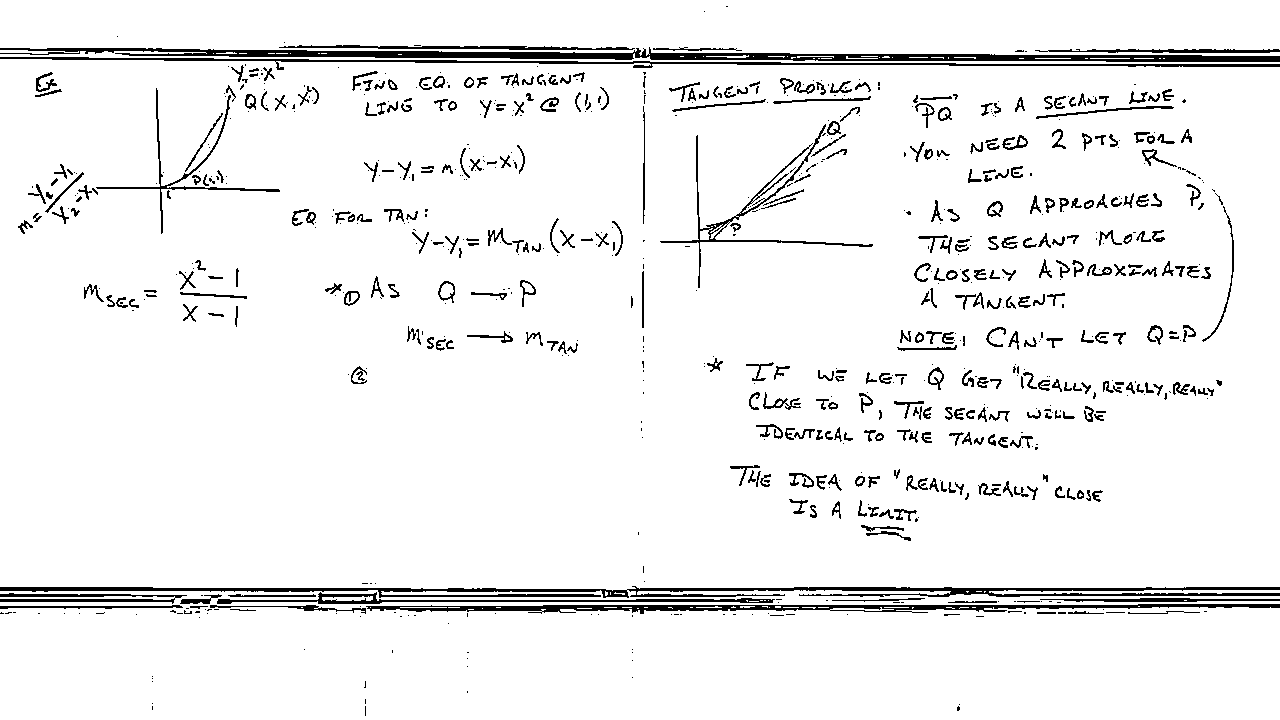 Ex
Y=X²
Q(X, X²)
P(1,1)
1
m = Y₂-Y₁ / X₂-X₁
FIND EQ. OF TANGENT
LINE TO Y=X² @ (1,1)
Y-Y₁ = m(X-X₁)
EQ FOR TAN:
Y-Y₁ = M_TAN (X-X₁)
M_SEC = X²-1 / X-1
* ① AS Q → P
M_SEC → M_TAN
②
TANGENT PROBLEM:
Q
P
PQ IS A SECANT LINE.
· YOU NEED 2 PTS FOR A
LINE.
· AS Q APPROACHES P,
THE SECANT MORE
CLOSELY APPROXIMATES
A TANGENT.
NOTE: CAN'T LET Q=P
* IF WE LET Q GET "REALLY, REALLY, REALLY"
CLOSE TO P, THE SECANT WILL BE
IDENTICAL TO THE TANGENT.
THE IDEA OF "REALLY, REALLY" CLOSE
IS A LIMIT.